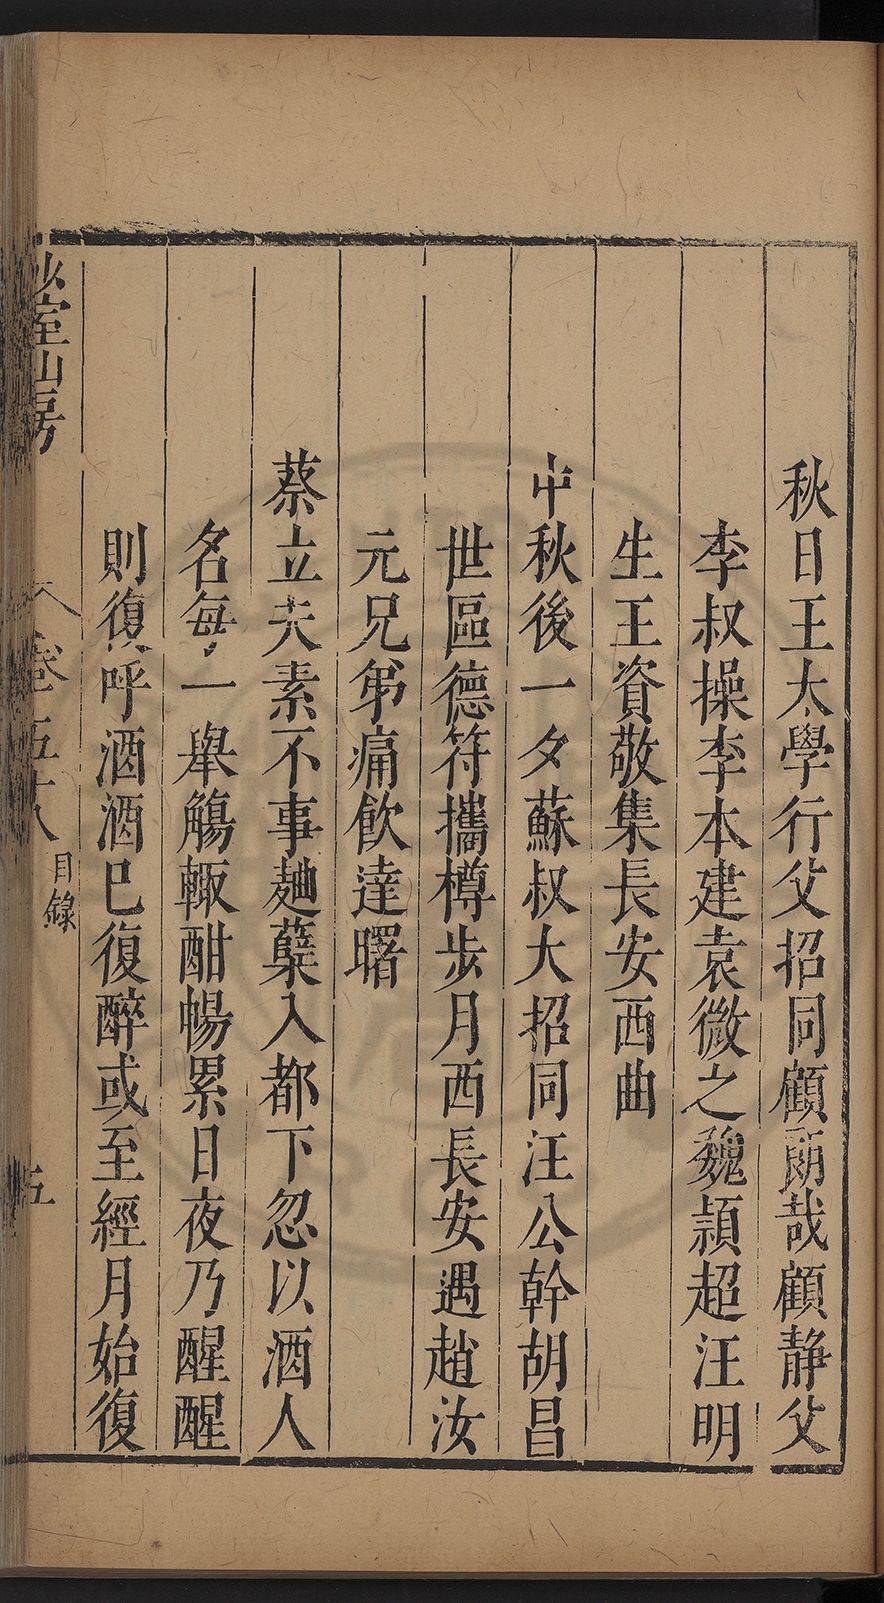 秋日王太學行父招同顧朗哉顧靜父
李叔操李本建袁微之魏頴超汪明
生王資敬集長安西曲
中秋後一夕蘇叔大招同汪公幹胡昌
世區德符攜樽步月西長安遇趙汝
元兄弟痛飲達曙
蔡立夫素不事麯櫱入都下忽以酒人
名每一舉觴輒酣暢累日夜乃醒醒
則復呼酒酒巳復醉或至經月始復
室山房
卷五十八
目錄
五